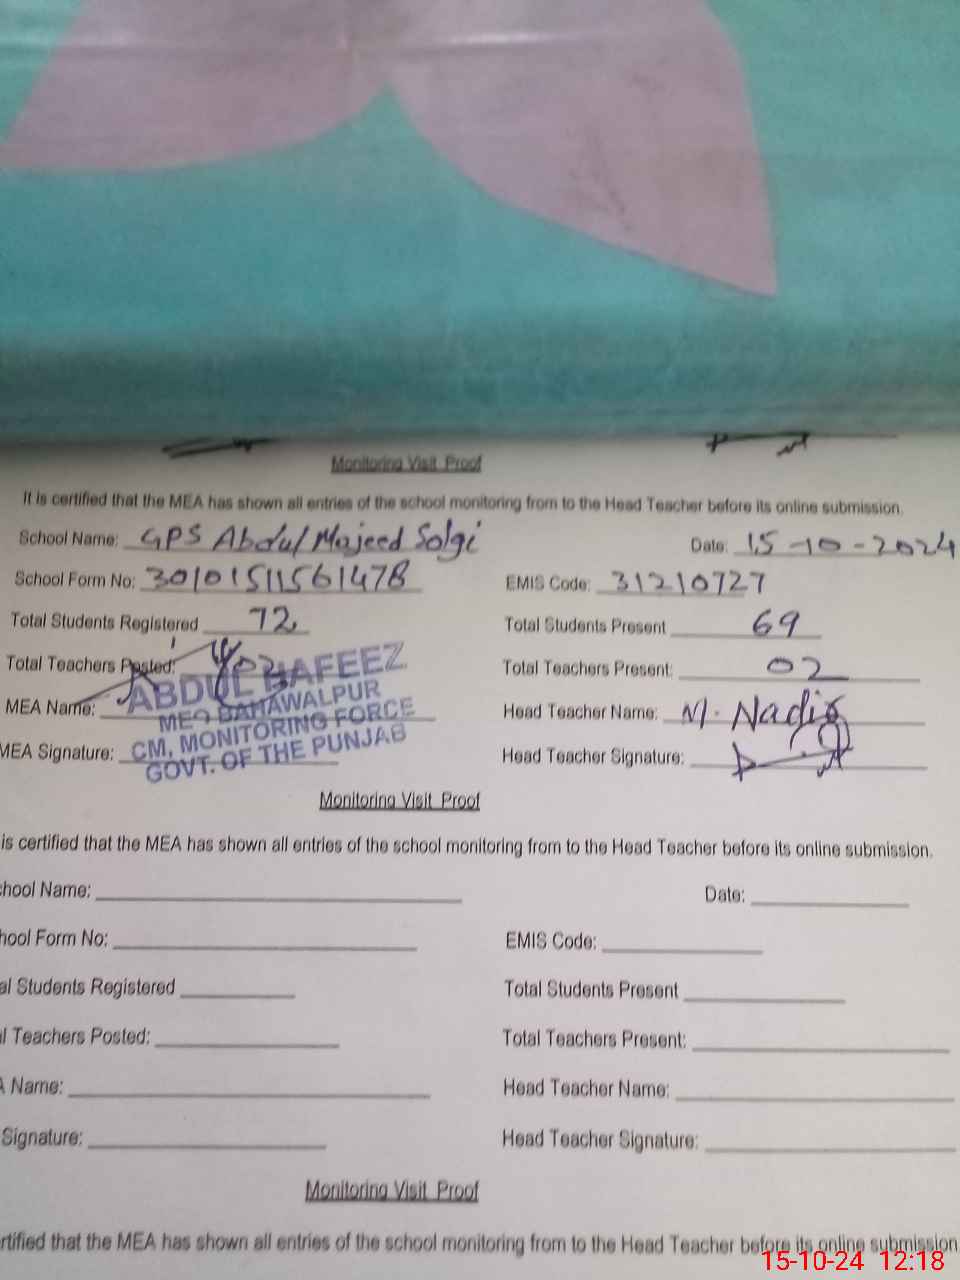 Monitoring Visit Proof
It is certified that the MEA has shown all entries of the school monitoring from to the Head Teacher before its online submission.
School Name: GPS Abdul Majeed Solgi Date: 15-10-2024
School Form No: 30101511561478 EMIS Code: 31210727
Total Students Registered 72 Total Students Present 69
Total Teachers Posted: 02 Total Teachers Present: 02
MEA Name: ABDUL HAFEEZ Head Teacher Name: M. Nadia
MEO BAHAWALPUR
MEA Signature: CM, MONITORING FORCE Head Teacher Signature:
GOVT. OF THE PUNJAB
Monitoring Visit Proof
is certified that the MEA has shown all entries of the school monitoring from to the Head Teacher before its online submission.
chool Name: Date:
hool Form No: EMIS Code:
al Students Registered Total Students Present
l Teachers Posted: Total Teachers Present:
A Name: Head Teacher Name:
Signature: Head Teacher Signature:
Monitoring Visit Proof
rtified that the MEA has shown all entries of the school monitoring from to the Head Teacher before its online submission
15-10-24 12:18